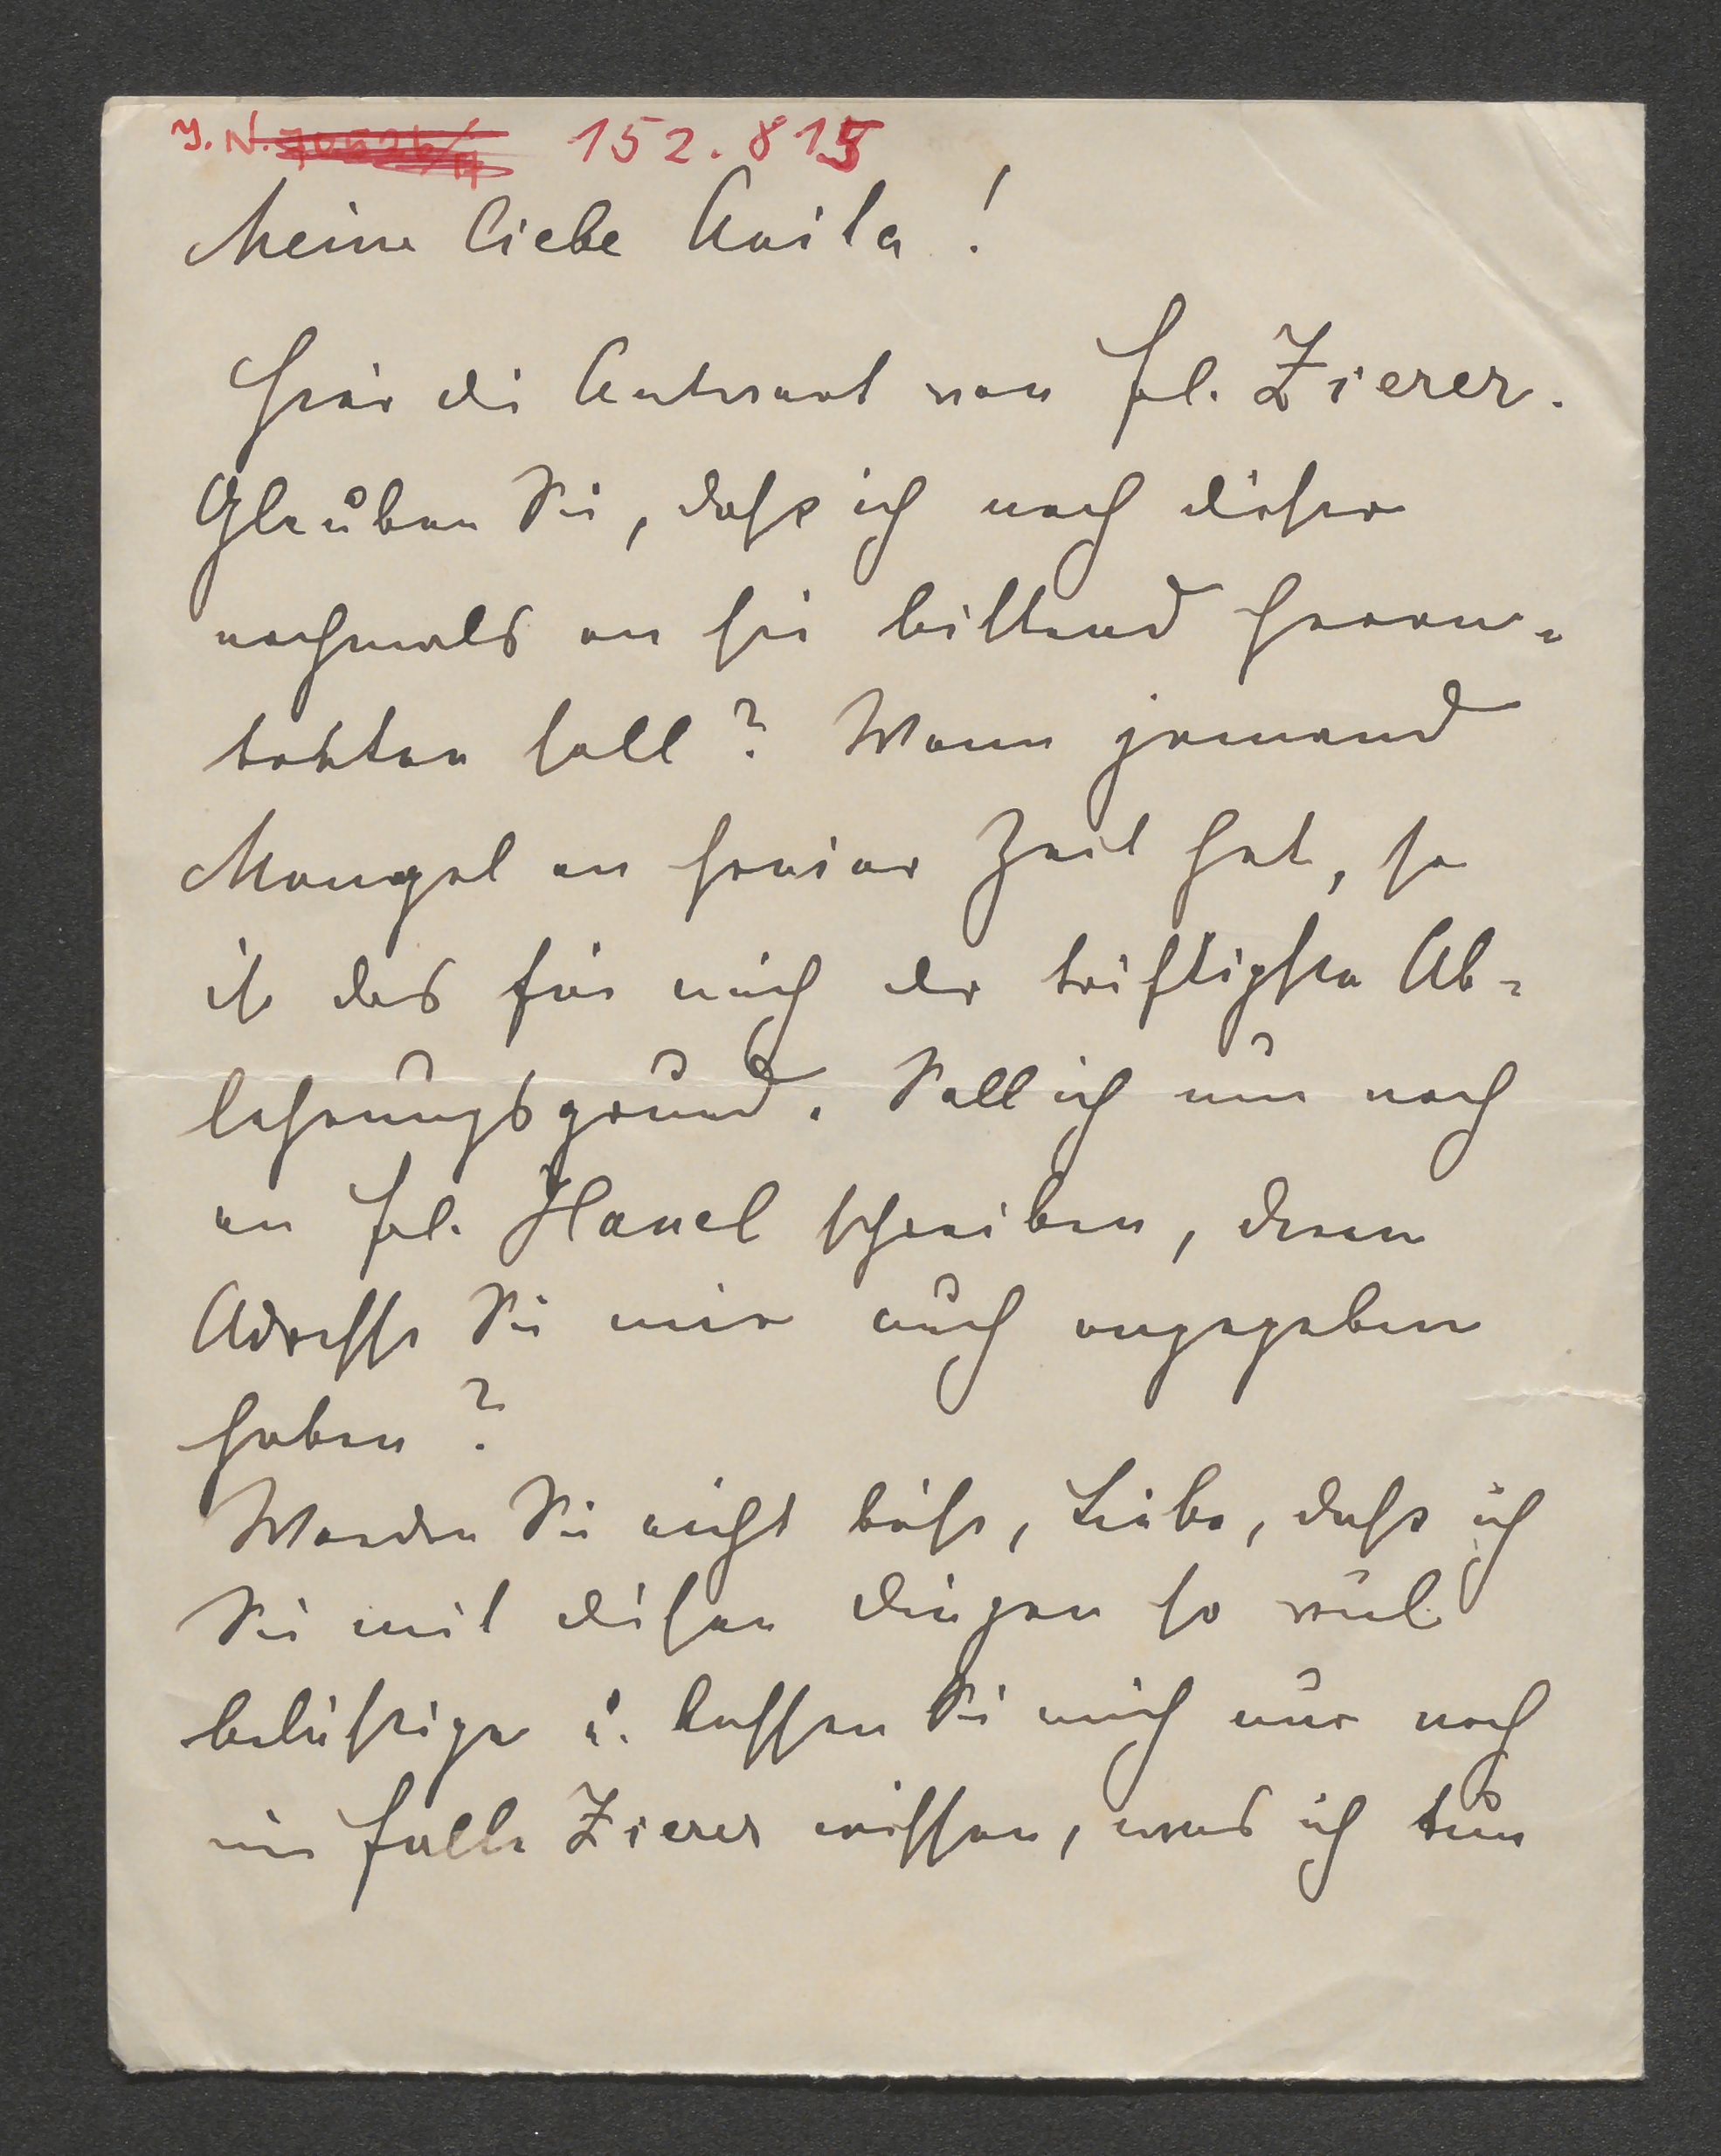 I. N. 152.815
Meine liebe Avila!
Hier die Antwort von Frl. Zierer.
Glauben Sie, daß ich nach dieser
nochmals an sie bittend heran-
treten soll? Wenn jemand
Mangel an freier Zeit hat, so
ist das für mich der triftigste Ab-
lehnungsgrund. Soll ich nun noch
an Frl. Hanel schreiben, deren
Adresse Sie mir auch angegeben
haben?
Werden Sie nicht böse, Liebe, daß ich
Sie mit diesen Dingen so viel
belästige u. lassen Sie mich nur noch
im Falle Zierer wissen, was ich tun